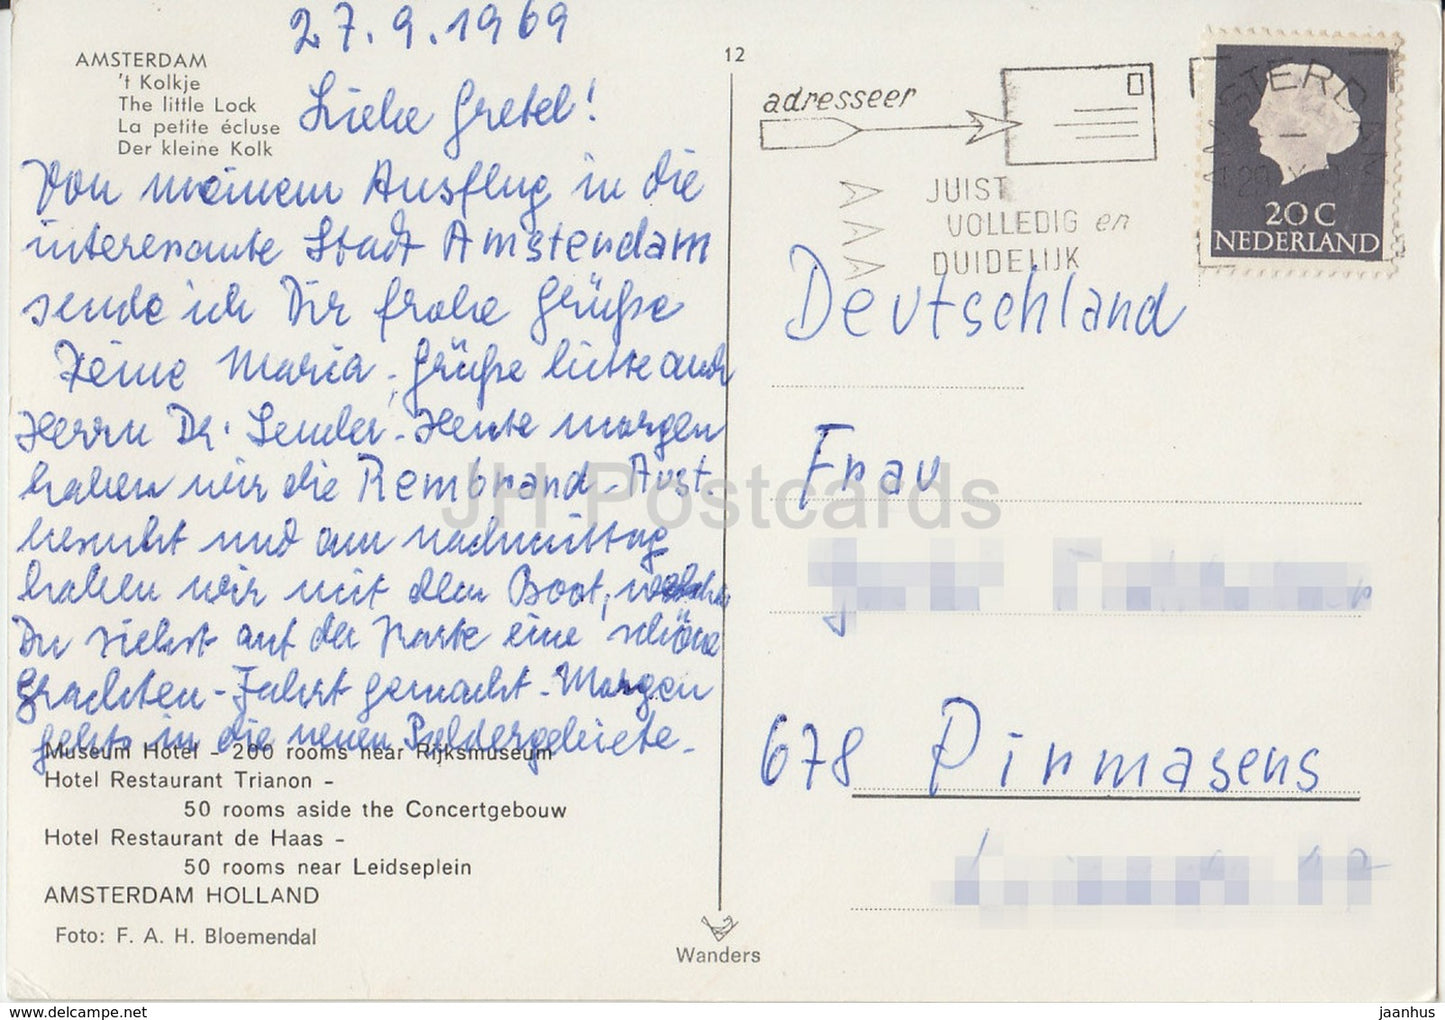 27.9.1969
AMSTERDAM
't Kolkje
The little Lock
La petite écluse
Der kleine Kolk
Liebe Gretel!
Von meinem Ausflug in die
interessante Stadt Amsterdam
sende ich Dir frohe Grüße
Deine Maria. Grüße bitte auch
Herrn Dr. Semler. Heute morgen
haben wir die Rembrand-Ausst.
besucht und am Nachmittag
haben wir mit dem Boot, welches
Du siehst auf der Karte eine schöne
Grachten-Fahrt gemacht. Morgen
gehts in die neuen Poldergebiete.
Museum Hotel - 200 rooms near Rijksmuseum
Hotel Restaurant Trianon -
50 rooms aside the Concertgebouw
Hotel Restaurant de Haas -
50 rooms near Leidseplein
AMSTERDAM HOLLAND
Foto: F. A. H. Bloemendal
12
Wanders
adresseer
JUIST
VOLLEDIG en
DUIDELIJK
AMSTERDAM
20 C
NEDERLAND
Deutschland
Frau
678 Pirmasens
JH Postcards
www.delcampe.net
jaanhus